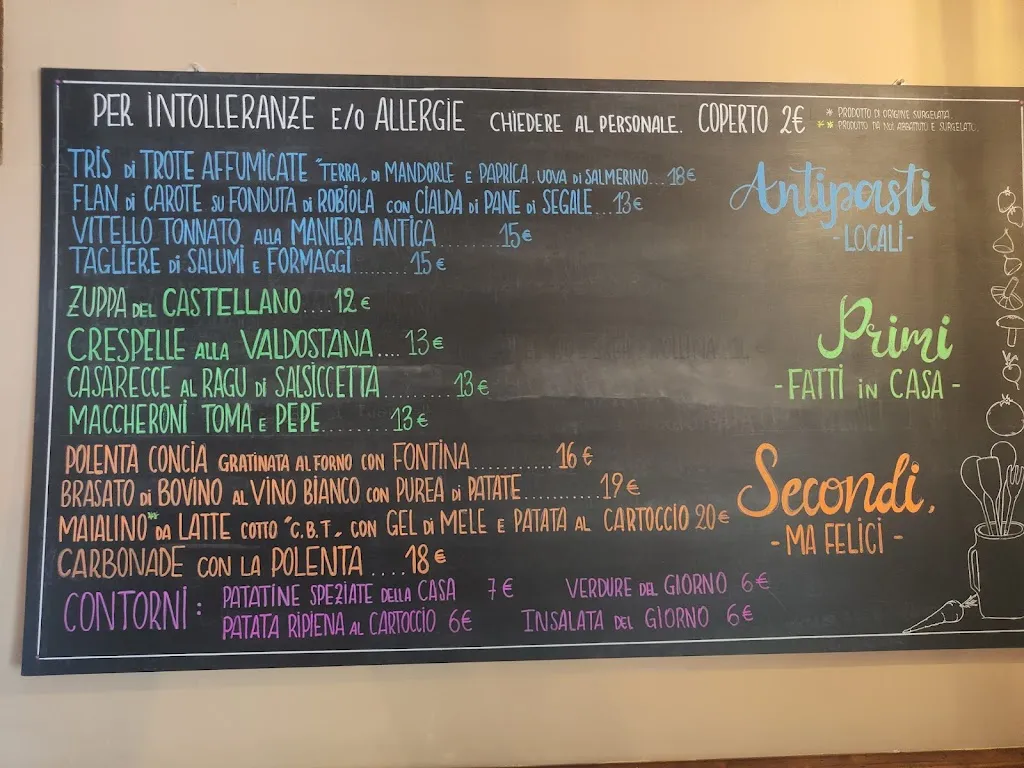 PER INTOLLERANZE E/O ALLERGIE CHIEDERE AL PERSONALE. COPERTO 2€
* PRODOTTO DI ORIGINE SURGELATA.
** PRODOTTO DA NOI ABBATTUTO E SURGELATO.
Antipasti
- LOCALI -
TRIS di TROTE AFFUMICATE "TERRA" di MANDORLE E PAPRICA, UOVA DI SALMERINO... 18€
FLAN di CAROTE SU FONDUTA di ROBIOLA CON CIALDA DI PANE DI SEGALE... 13€
VITELLO TONNATO ALLA MANIERA ANTICA....... 15€
TAGLIERE di SALUMI E FORMAGGI....... 15€
Primi
- FATTI in CASA -
ZUPPA DEL CASTELLANO.... 12€
CRESPELLE ALLA VALDOSTANA.... 13€
CASARECCE AL RAGU di SALSICCETTA 13€
MACCHERONI TOMA E PEPE........ 13€
Secondi,
- MA FELICI -
POLENTA CONCIA GRATINATA AL FORNO CON FONTINA........... 16€
BRASATO di BOVINO AL VINO BIANCO CON PUREA di PATATE.......... 19€
MAIALINO** DA LATTE COTTO "C.B.T." CON GEL di MELE E PATATA AL CARTOCCIO 20€
CARBONADE CON LA POLENTA .... 18€
CONTORNI: PATATINE SPEZIATE DELLA CASA 7€ VERDURE DEL GIORNO 6€
PATATA RIPIENA AL CARTOCCIO 6€ INSALATA DEL GIORNO 6€